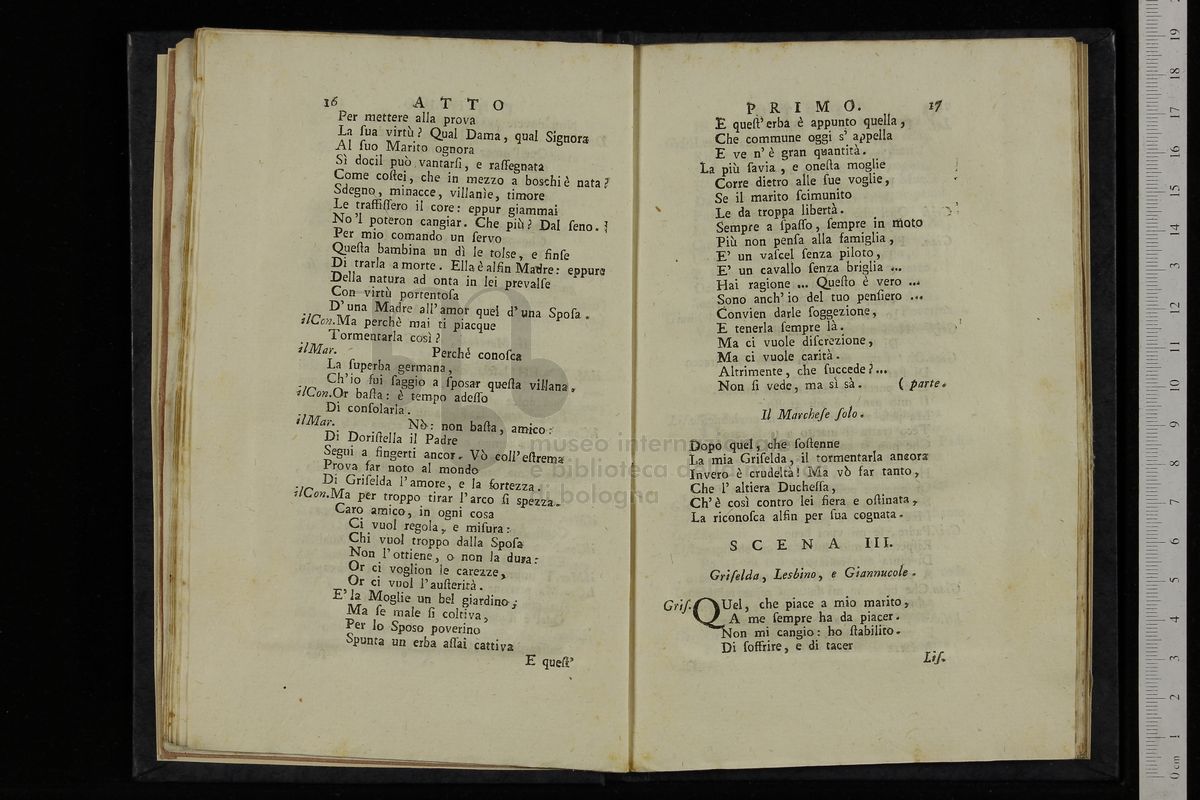 16 ATTO
Per mettere alla prova
La ſua virtù? Qual Dama, qual Signora
Al ſuo Marito ognora
Sì docil può vantarſi, e raſſegnata
Come coſtei, che in mezzo a boschi è nata?
Sdegno, minacce, villanìe, timore
Le traffiſſero il core: eppur giammai
No'l poteron cangiar. Che più? Dal ſeno.
Per mio comando un ſervo
Queſta bambina un dì le tolse, e finſe
Di trarla a morte. Ella è alfin Madre: eppure
Della natura ad onta in lei prevalſe
Con virtù portentoſa
D'una Madre all'amor quel d'una Spoſa.
ilCon. Ma perchè mai ti piacque
Tormentarla così?
ilMar. Perchè conoſca
La ſuperba germana,
Ch'io fui ſaggio a ſposar queſta villana.
ilCon. Or baſta: è tempo adeſſo
Di conſolarla.
ilMar. Nò: non baſta, amico:
Di Doriſtella il Padre
Segui a fingerti ancor. Vò coll'eſtrema
Prova far noto al mondo
Di Griſelda l'amore, e la fortezza.
ilCon. Ma per troppo tirar l'arco ſi spezza.
Caro amico, in ogni cosa
Ci vuol regola, e miſura:
Chi vuol troppo dalla Spoſa
Non l'ottiene, o non la dura:
Or ci voglion le carezze,
Or ci vuol l'auſterità.
E' la Moglie un bel giardino;
Ma ſe male ſi coltiva,
Per lo Sposo poverino
Spunta un erba aſſai cattiva
E queſt'
PRIMO. 17
E queſt'erba è appunto quella,
Che commune oggi s'appella
E ve n'è gran quantità.
La più ſavia, e oneſta moglie
Corre dietro alle ſue voglie,
Se il marito ſcimunito
Le da troppa libertà.
Sempre a ſpaſſo, ſempre in moto
Più non penſa alla famiglia,
E' un vaſcel ſenza piloto,
E' un cavallo ſenza briglia ...
Hai ragione ... Queſto è vero ...
Sono anch'io del tuo penſiero ...
Convien darle ſoggezione,
E tenerla ſempre là.
Ma ci vuole diſcrezione,
Ma ci vuole carità.
Altrimente, che ſuccede?...
Non ſi vede, ma sì sà. (parte.
Il Marcheſe ſolo.
Dopo quel, che ſoſtenne
La mia Griſelda, il tormentarla ancora
Invero è crudeltà! Ma vò far tanto,
Che l'altiera Ducheſſa,
Ch'è così contro lei fiera e oſtinata,
La riconoſca alfin per ſua cognata.
SCENA III.
Griſelda, Lesbino, e Giannucole.
Griſ. QUel, che piace a mio marito,
A me ſempre ha da piacer.
Non mi cangio: ho ſtabilito
Di ſoffrire, e di tacer
Liſ.
museo internazionale
e biblioteca della musica
di bologna